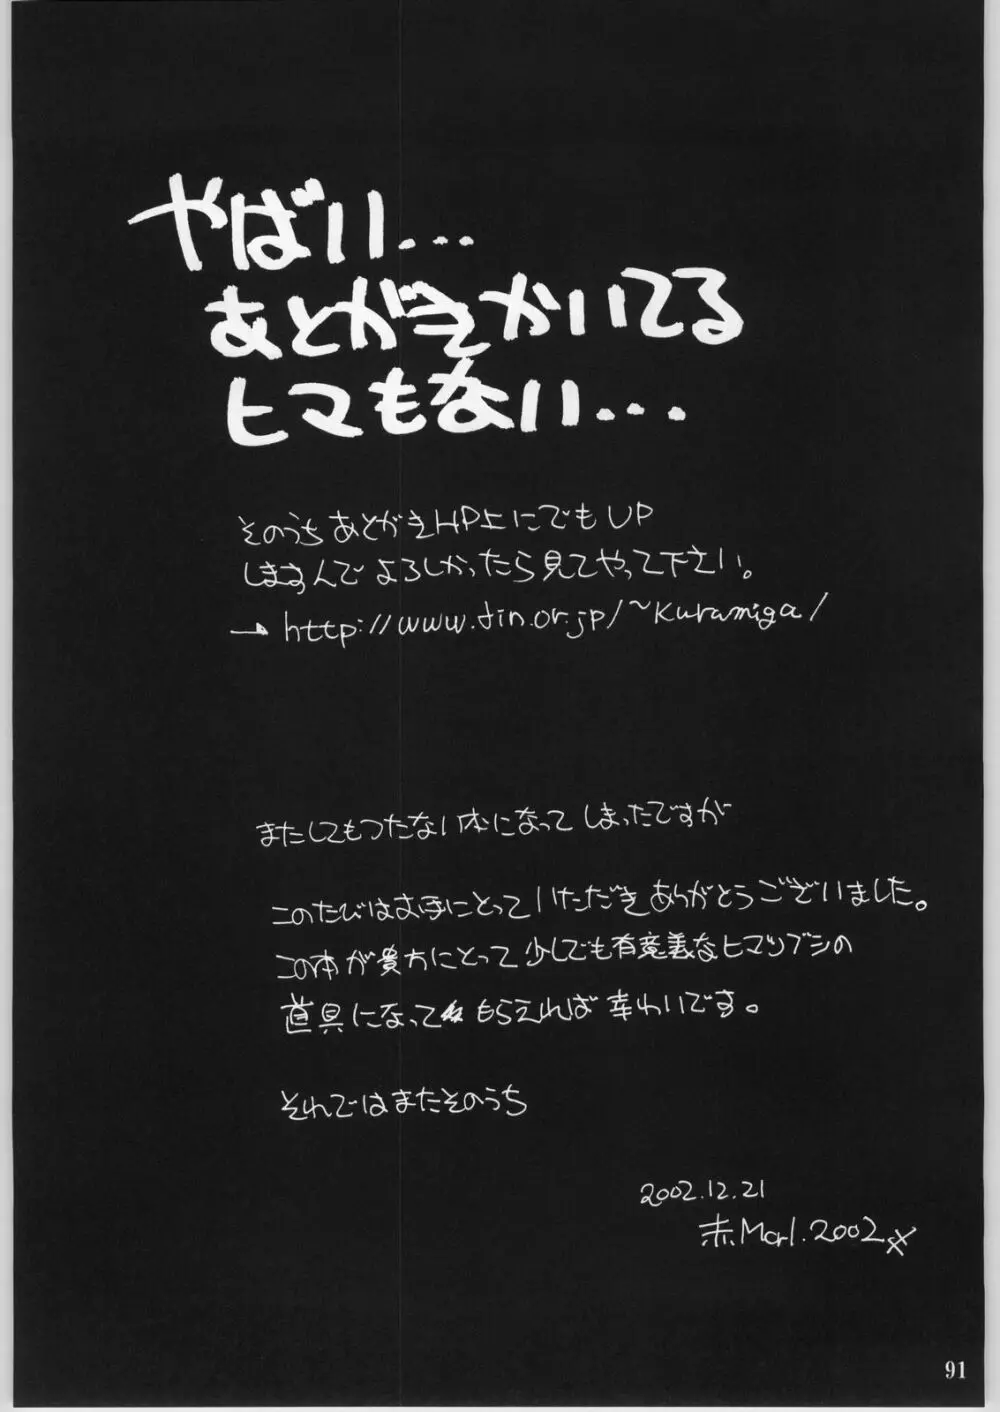 やばい...
あとがきかいてる
ヒマもない...
そのうちあとがきHP上にでもUP
しますんでよろしかったら見てやって下さい。
→ http://www.din.or.jp/~kuramiga/
またしてもつたない本になってしまったですが
このたびはお手にとっていただきありがとうございました。
この本が貴方にとって少しでも有意義なヒマツブシの
道具になってもらえれば幸わいです。
それではまたそのうち
2002.12.21
赤Marl.2002
91